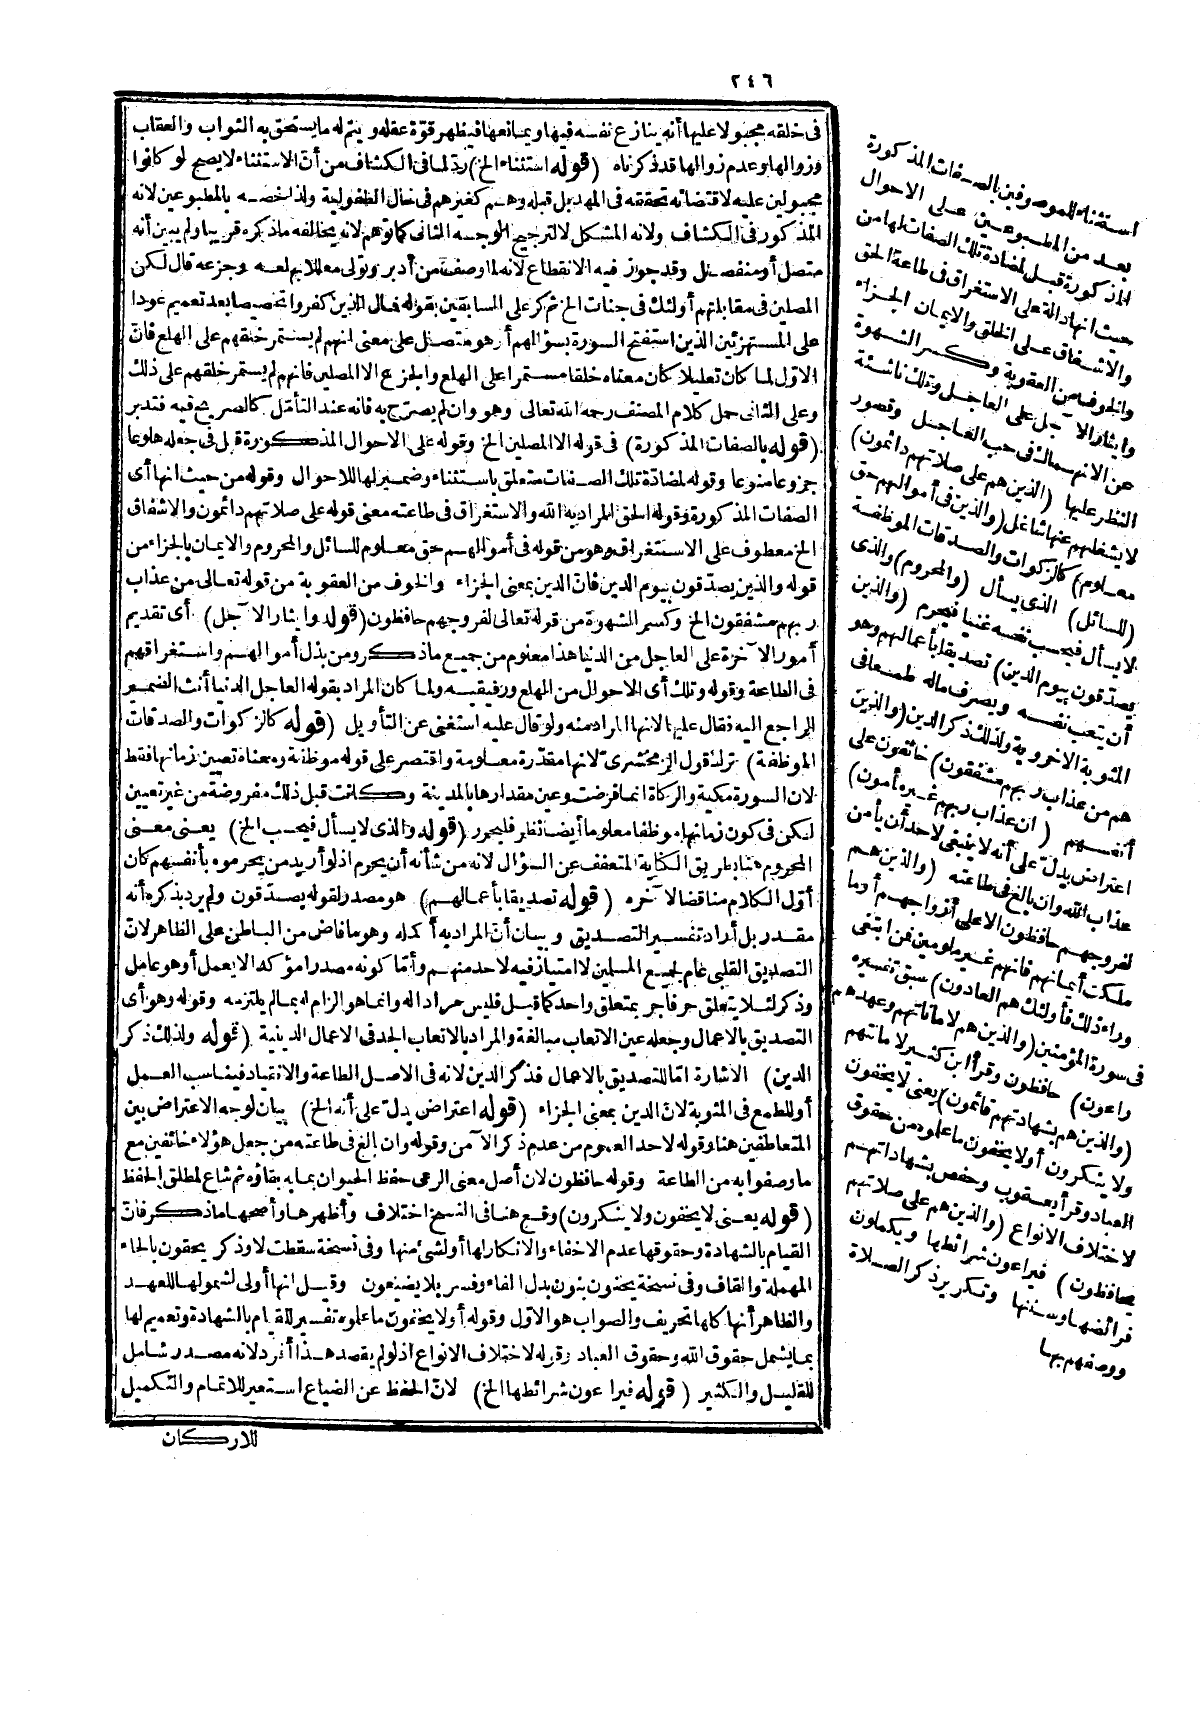 ٢٤٦
فى خلقه مجبولا عليها أنه ينازع نفسه فيها ويمانعها فيظهر قوة عقله ويتم له ما يستحق به الثواب والعقاب
وزوالها وعدم زوالها قد ذكرناه (قوله استثناء الخ) رد لما فى الكشاف من أنّ الاستثناء لا يصح لو كانوا
مجبولين عليه لاقتضائه تحققه فى المهد بل قبله وهم كغيرهم فى حال الطفولية ولذا خصه بالمطبوعين لانه
المذكور فى الكشاف ولانه المشكل لا لترجيح الوجه الثانى كما توهم لانه يخالفه ما ذكره قريبا ولم يبين أنه
متصل أو منفصل وقد جوّز فيه الانقطاع لانه لما وصف من أدبر وتولى معللا بهلعه وجزعه قال لكن
المصلين فى مقابلتهم أولئك فى جنات الخ ثم كر على السابقين بقوله فمال الذين كفروا تخصيصا بعد تعميم عودا
على المستهزئين الذين استفتح السورة بسؤالهم أو هو متصل على معنى انهم لم يستمر خلقهم على الهلع فانّ
الاوّل لما كان تعليلا كان معناه خلقا مستمرا على الهلع والجزع الا المصلين فانهم لم يستمر خلقهم على ذلك
وعلى الثانى حمل كلام المصنف رحمه الله تعالى وهو وان لم يصرّح به فانه عند التأمّل كالصريح فيه فتدبر
(قوله بالصفات المذكورة) فى قوله الا المصلين الخ وقوله على الاحوال المذكورة قبل فى جعله هلوعا
جزوعا منوعا وقوله لمضادة تلك الصفات متعلق باستثناء وضمير لها للاحوال وقوله من حيث انها أى
الصفات المذكورة وقوله الحق المراد به الله والاستغراق فى طاعته معنى قوله على صلاتهم دائمون والاشفاق
الخ معطوف على الاستغراق وهو من قوله فى أموالهم حق معلوم للسائل والمحروم والايمان بالجزاء من
قوله والذين يصدّقون بيوم الدين فانّ الدين بمعنى الجزاء والخوف من العقوبة من قوله تعالى من عذاب
ربهم مشفقون الخ وكسر الشهوة من قوله تعالى لفروجهم حافظون (قوله وايثار الآجل) أى تقديم
أمور الآخرة على العاجل من الدنيا هذا معلوم من جميع ما ذكر ومن بذل أموالهم واستغراقهم
فى الطاعة وقوله وتلك أى الاحوال من الهلع ورفيقيه ولما كان المراد بقوله العاجل الدنيا أنث الضمير
الراجع اليه فقال عليها لانها المراد منه ولو قال عليه استغنى عن التأويل (قوله كالزكوات والصدقات
الموظفة) ترك قول الزمخشرى لانها مقدّرة معلومة واقتصر على قوله موظفة ومعناه تعيين زمانها فقط
لان السورة مكية والزكاة انما فرضت وعين مقدارها بالمدينة وكانت قبل ذلك مفروضة من غير تعيين
لكن فى كون زمانها موظفا معلوما أيضا نظر فليحرر (قوله والذى لا يسأل فيحسب الخ) يعنى معنى
المحروم هنا بطريق الكناية المتعفف عن السؤال لانه من شأنه أن يحرم اذ لو أريد من يحرموه بأنفسهم كان
أوّل الكلام مناقضا لآخره (قوله تصديقا بأعمالهم) هو مصدر لقوله يصدّقون ولم يرد بذكره أنه
مقدر بل أراد تفسير التصديق وبيان أنّ المراد به أكمله وهو ما فاض من الباطن على الظاهر لانّ
التصديق القلبى عام لجميع المسلمين لا امتياز فيه لاحد منهم وأمّا كونه مصدرا مؤكدا لا يعمل أو هو عامل
وذكر لئلا يتعلق حرفا جر بمتعلق واحد كما قيل فليس مرادا له وانما هو الزام له بما لم يلتزمه وقوله وهو أى
التصديق بالاعمال وجعله عين الاتعاب مبالغة والمراد بالاتعاب الجد فى الاعمال الدينية (قوله ولذلك ذكر
الدين) الاشارة امّا للتصديق بالاعمال فذكر الدين لانه فى الاصل الطاعة والانقياد فيناسب العمل
أو للطمع فى المثوبة لانّ الدين بمعنى الجزاء (قوله اعتراض يدلّ على أنه الخ) بيان لوجه الاعتراض بين
المتعاطفين هنا وقوله لاحد العموم من عدم ذكر الآمن وقوله وان بالغ فى طاعته من جعل هؤلاء خائفين مع
ما وصفوا به من الطاعة وقوله حافظون لان أصل معنى الرعى حفظ الحيوان بما به بقاؤه ثم شاع لمطلق الحفظ
(قوله يعنى لا يخفون ولا ينكرون) وقع هنا فى النسخ اختلاف وأظهرها وأصحها ما ذكر فانّ
القيام بالشهادة وحقوقها عدم الاخفاء والانكار لها أو لشئ منها وفى نسخة سقطت لا وذكر يحقون بالحاء
المهملة والقاف وفى نسخة يحنون بنون بدل الفاء وفسر بلا يضيعون وقيل انها أولى لشمولها للعهد
والظاهر أنها كلها تحريف والصواب هو الاوّل وقوله أو لا يخفون ما علموه تفسير للقيام بالشهادة وتعميم لها
بما يشمل حقوق الله وحقوق العباد وقوله لاختلاف الانواع اذ لو لم يقصد هذا أفرد لانه مصدر شامل
للقليل والكثير (قوله فيراعون شرائطها الخ) لانّ الحفظ عن الضياع استعير للاتمام والتكميل
للاركان
استثناء للموصوفين بالصفات المذكورة
بعد من المطبوعين على الاحوال
المذكورة قبل لمضادة تلك الصفات لها من
حيث انها دالة على الاستغراق فى طاعة الحق
والاشفاق على الخلق والايمان بالجزاء
والخوف من العقوبة وكسر الشهوة
وايثار الآجل على العاجل وتلك ناشئة
عن الانهماك فى حب العاجل وقصور
النظر عليها (الذين هم على صلاتهم دائمون)
لا يشغلهم عنها شاغل (والذين فى أموالهم حق
معلوم) كالزكوات والصدقات الموظفة
(للسائل) الذى يسأل (والمحروم) والذى
لا يسأل فيحسب نفسه غنيا فيحرم (والذين
يصدّقون بيوم الدين) تصديقا بأعمالهم وهو
أن يتعب نفسه ويصرف ماله طمعا فى
المثوبة الاخروية ولذلك ذكر الدين (والذين
هم من عذاب ربهم مشفقون) خائفون على
أنفسهم (ان عذاب ربهم غير مأمون)
اعتراض يدلّ على أنه لا ينبغى لاحد أن يأمن
عذاب الله وان بالغ فى طاعته (والذين هم
لفروجهم حافظون الا على أزواجهم أو ما
ملكت أيمانهم فانهم غير ملومين فمن ابتغى
وراء ذلك فأولئك هم العادون) سبق تفسيره
فى سورة المؤمنين (والذين هم لاماناتهم وعهدهم
راعون) حافظون وقرأ ابن كثير لامانتهم
(والذين هم بشهادتهم قائمون) يعنى لا يخفون
ولا ينكرون أو لا يخفون ما علموه من حقوق
العباد وقرأ يعقوب وحفص بشهاداتهم
لاختلاف الانواع (والذين هم على صلاتهم
يحافظون) فيراعون شرائطها ويكملون
فرائضها وسننها وتكرير ذكر الصلاة
ووصفهم بها